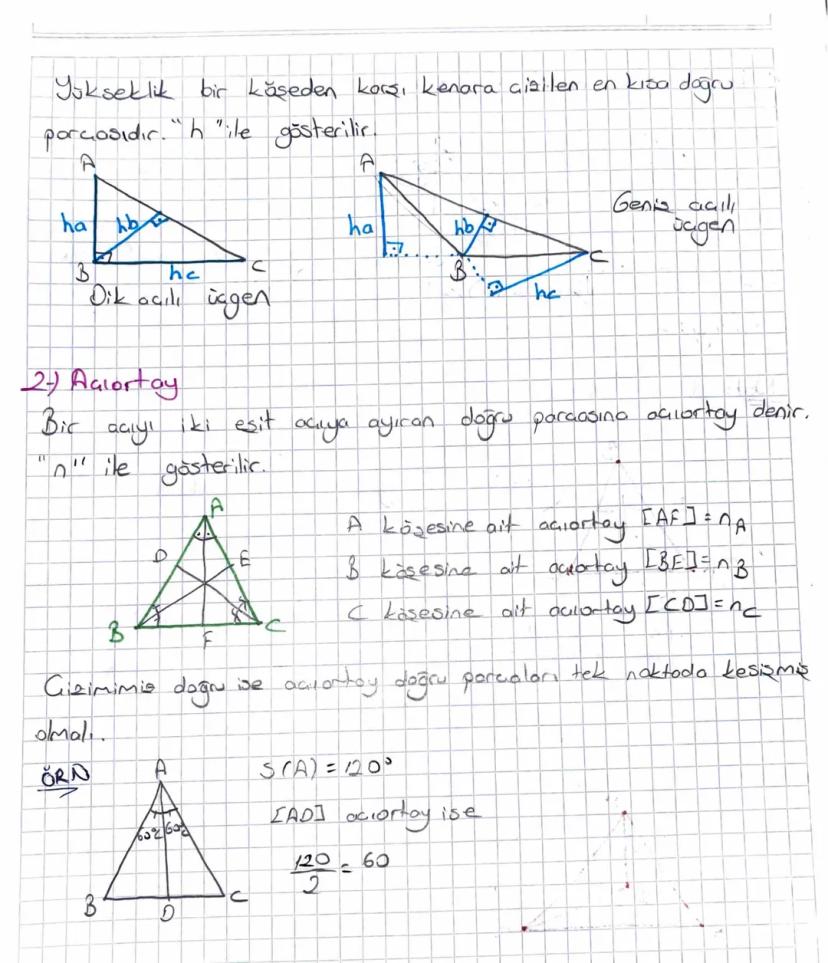 Yükseklik bir köşeden karşı kenara çizilen en kısa doğru
parçasıdır. "h" ile gösterilir.
A
A
ha
hb
ha
hb
Geniş açılı
üçgen
B
hc
C
B
C
Dik açılı üçgen
hc
2-) Açıortay
Bir açıyı iki eşit açıya ayıran doğru parçasına açıortay denir.
"n" ile gösterilir.
A
A köşesine ait açıortay [AF] = nA
D
E
B köşesine ait açıortay [BE] = nB
C köşesine ait açıortay [CD] = nC
B
F
C
Çizimimiz doğru ise açıortay doğru parçaları tek noktada kesişmiş
olmalı.
ÖRN
A
S(A) = 120°
[AD] açıortay ise
60° 60°
120/2 = 60
B
D
C